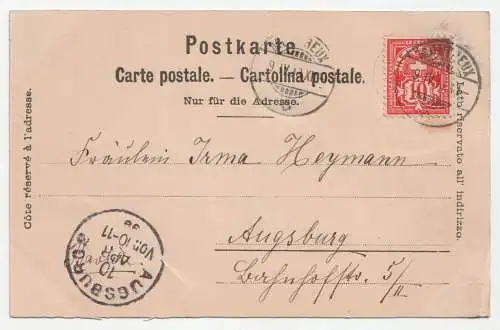 Postkarte.
Carte postale. — Cartolina postale.
Nur für die Adresse.
Côte réservé à l'adresse.
Lato riservato all' indirizzo.
10
Fräulein Irma Heymann
Augsburg
Bahnhofstr. 5/II
AUGSBURG
10
APR
Vor. 10-11